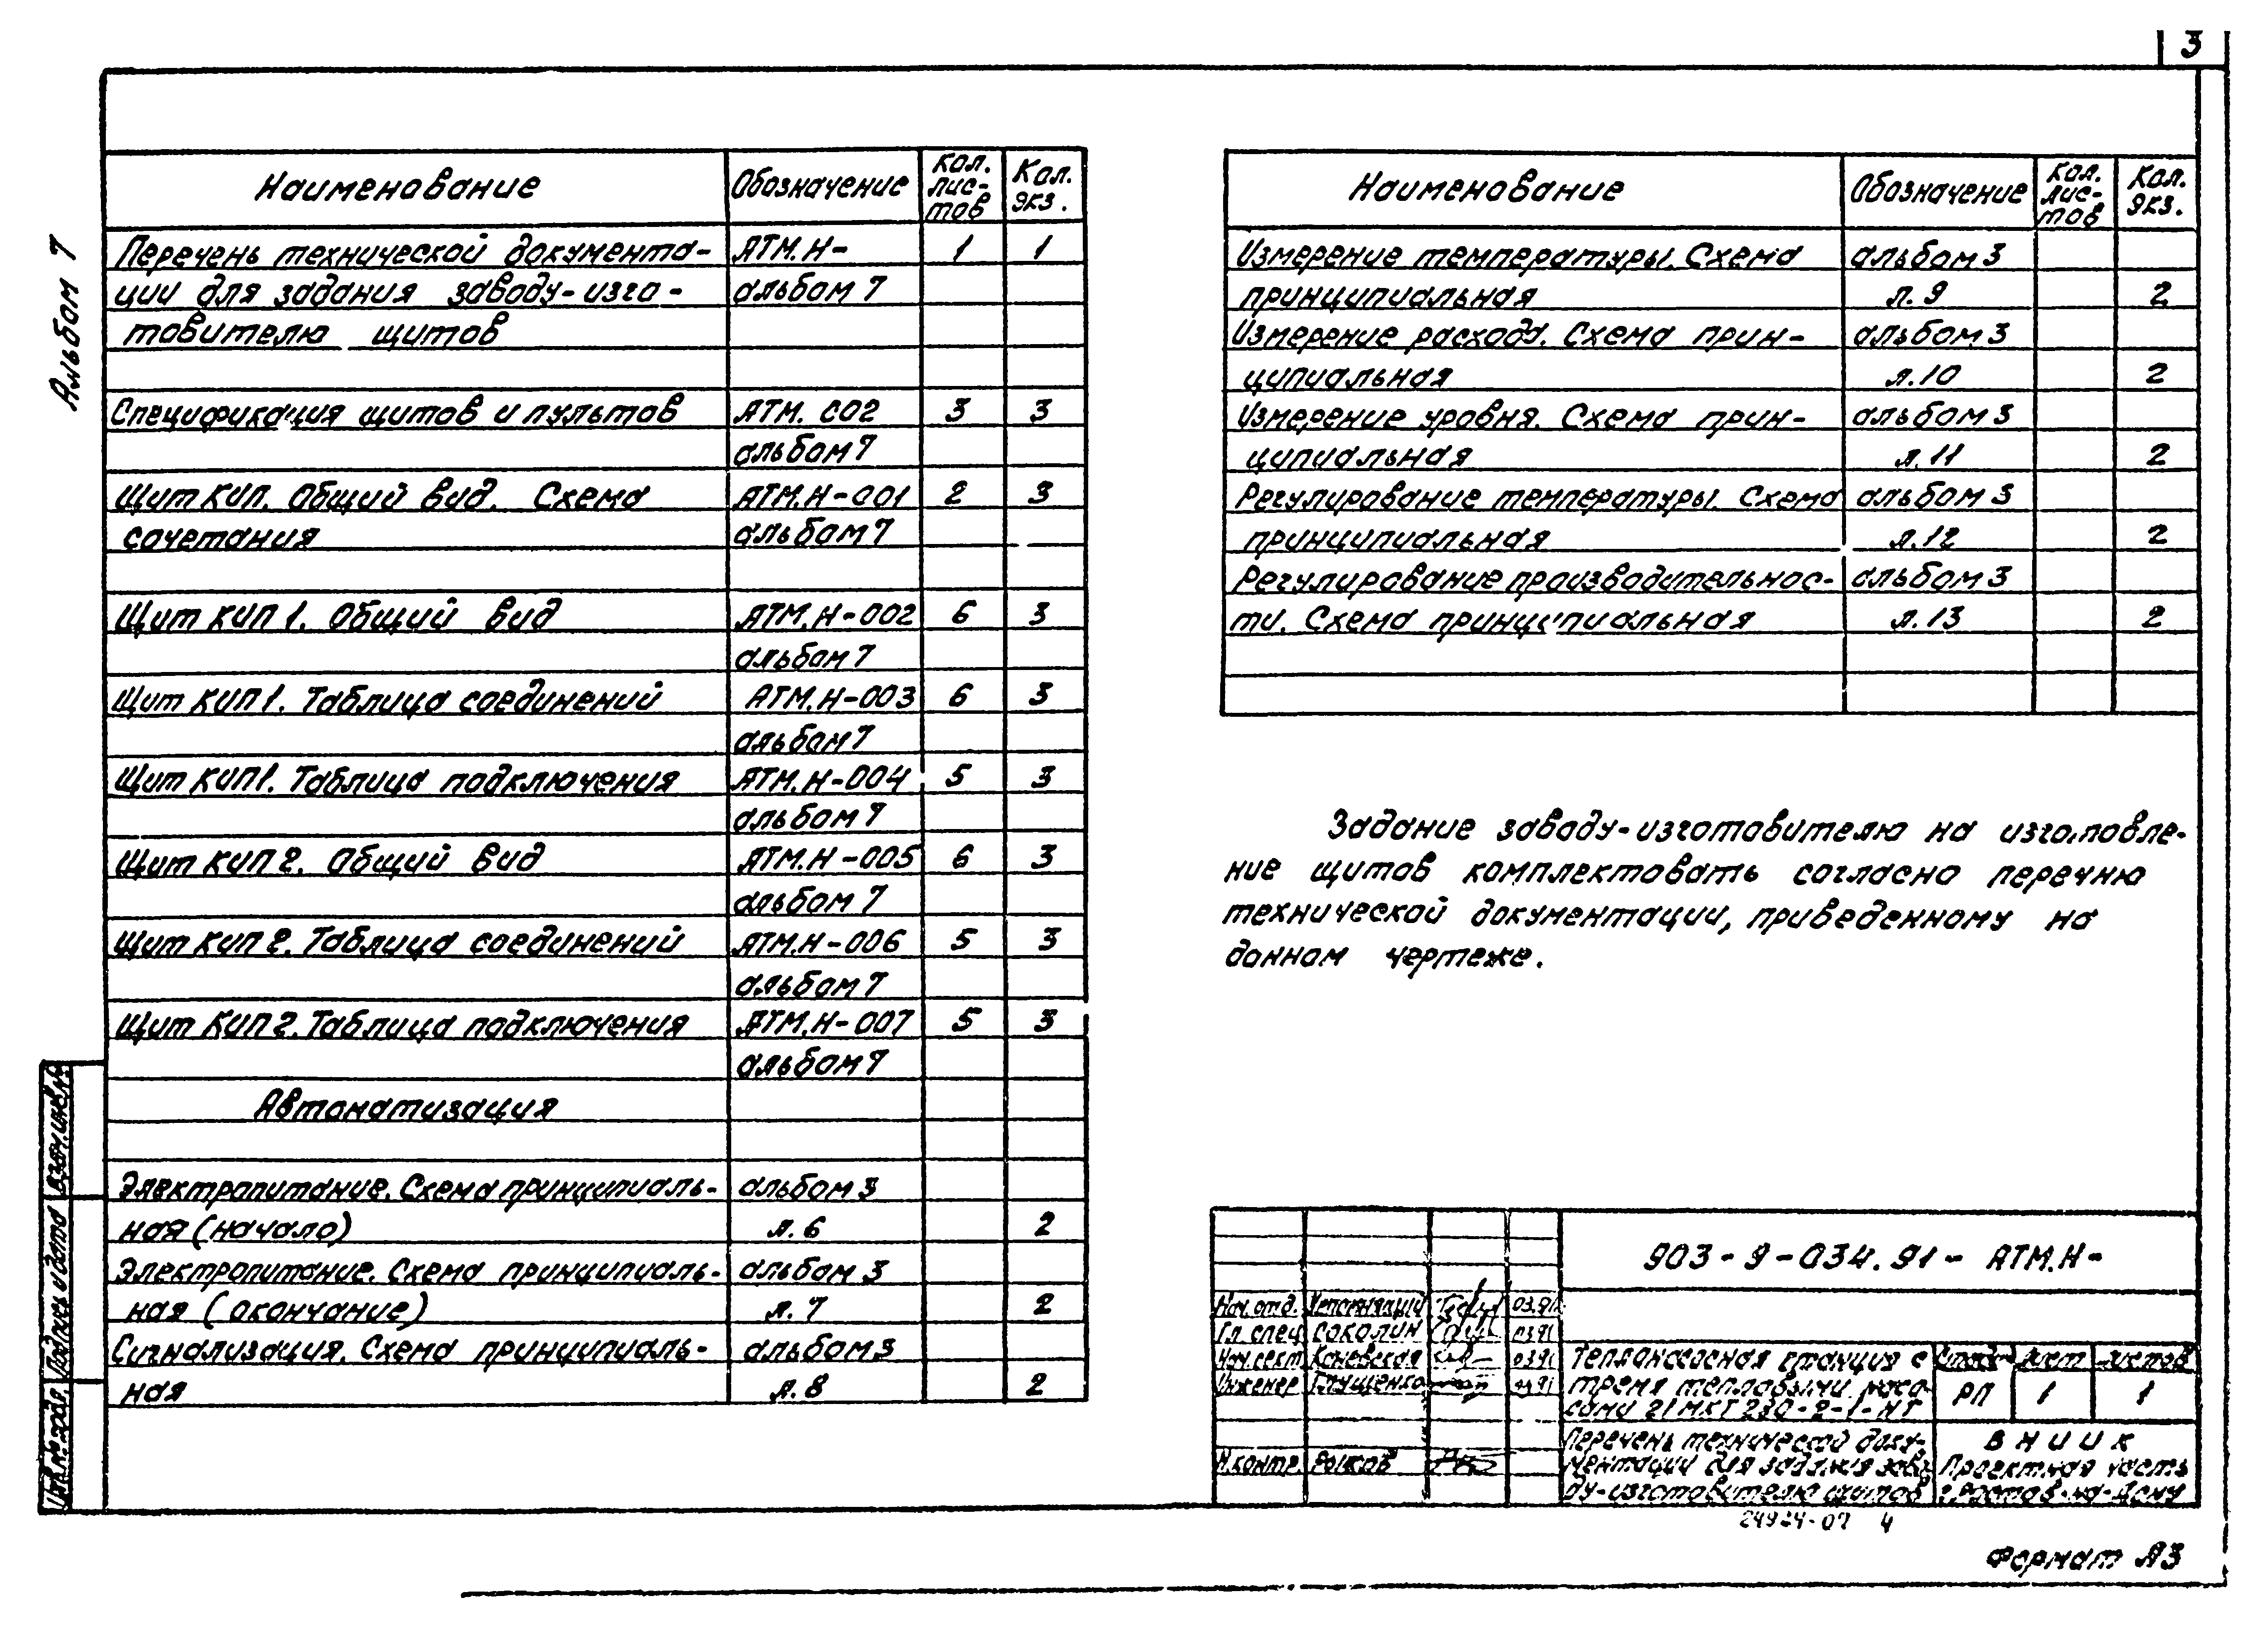 3
Альбом 7
Наименование Обозначение Кол. лис- тов Кол. экз.
Перечень технической документа- АТМ.Н- 1 1
ции для задания заводу-изго- альбом 7
товителю щитов
Спецификация щитов и пультов АТМ. СО2 3 3
альбом 7
Щит КИП. Общий вид. Схема АТМ.Н-001 2 3
сочетания альбом 7
Щит КИП 1. Общий вид АТМ.Н-002 6 3
альбом 7
Щит КИП 1. Таблица соединений АТМ.Н-003 6 3
альбом 7
Щит КИП 1. Таблица подключения АТМ.Н-004 5 3
альбом 7
Щит КИП 2. Общий вид АТМ.Н-005 6 3
альбом 7
Щит КИП 2. Таблица соединений АТМ.Н-006 5 3
альбом 7
Щит КИП 2. Таблица подключения АТМ.Н-007 5 3
альбом 7
Автоматизация
Электропитание. Схема принципиаль- альбом 3
ная (начало) л. 6 2
Электропитание. Схема принципиаль- альбом 3
ная (окончание) л. 7 2
Сигнализация. Схема принципиаль- альбом 3
ная л. 8 2
Наименование Обозначение Кол. лис- тов Кол. экз.
Измерение температуры. Схема альбом 3
принципиальная л. 9 2
Измерение расхода. Схема прин- альбом 3
ципиальная л. 10 2
Измерение уровня. Схема прин- альбом 3
ципиальная л. 11 2
Регулирование температуры. Схема альбом 3
принципиальная л. 12 2
Регулирование производительнос- альбом 3
ти. Схема принципиальная л. 13 2
Задание заводу-изготовителю на изготовле-
ние щитов комплектовать согласно перечню
технической документации, приведенному на
данном чертеже.
903-9-034.91- АТМ.Н-
Нач. отд. 03.91
Гл. спец Соколин 03.91
Нач. сект Каневская 03.91
Инженер Глущенко 03.91
Н.контр. Рыжов
Теплонасосная станция с
тремя тепловыми насо-
сами 21МКТ 280-2-1-НТ
Стадия Лист Листов
РП 1 1
Перечень технической доку-
ментации для задания заво-
ду-изготовителю щитов
ВНИИК
Проектная часть
г. Ростов-на-Дону
24924-07 4
Формат А3
Взам. инв. №
Подпись и дата
Инв. № подл.